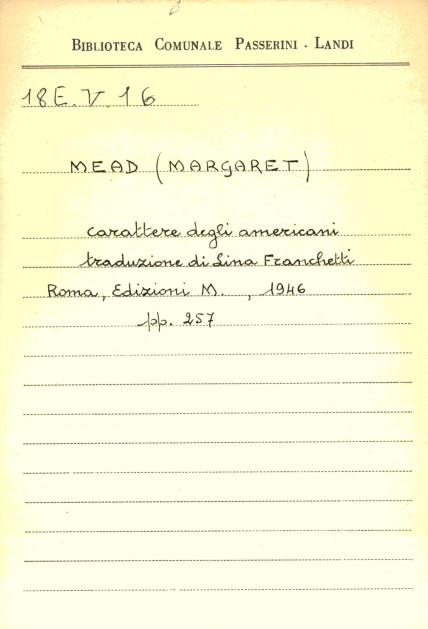 BIBLIOTECA COMUNALE PASSERINI - LANDI
18E.V.16
MEAD (MARGARET)
Carattere degli americani
traduzione di Lina Franchetti
Roma, Edizioni M. , 1946
pp. 257